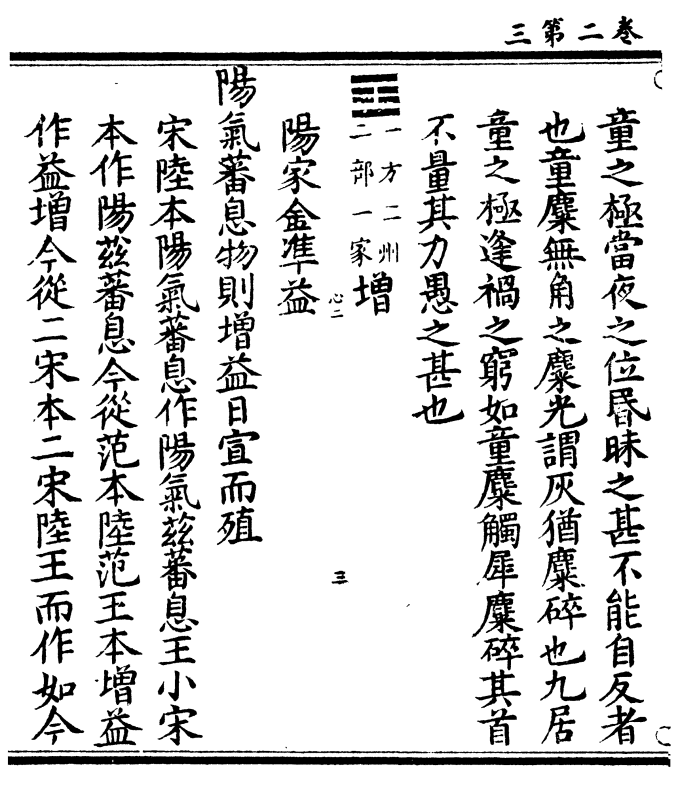 卷二第三
童之極當夜之位昬昧之甚不能自反者
也童麋無角之麋光謂灰猶麋碎也九居
童之極逢禍之窮如童麋觸犀麋碎其首
不量其力愚之甚也
𝌒
一方二州
二部一家
增
心二
三
陽家金準益
陽氣蕃息物則增益日宣而殖
宋陸本陽氣蕃息作陽氣茲蕃息王小宋
本作陽茲蕃息今從范本陸范王本增益
作益增今從二宋本二宋陸王而作如今